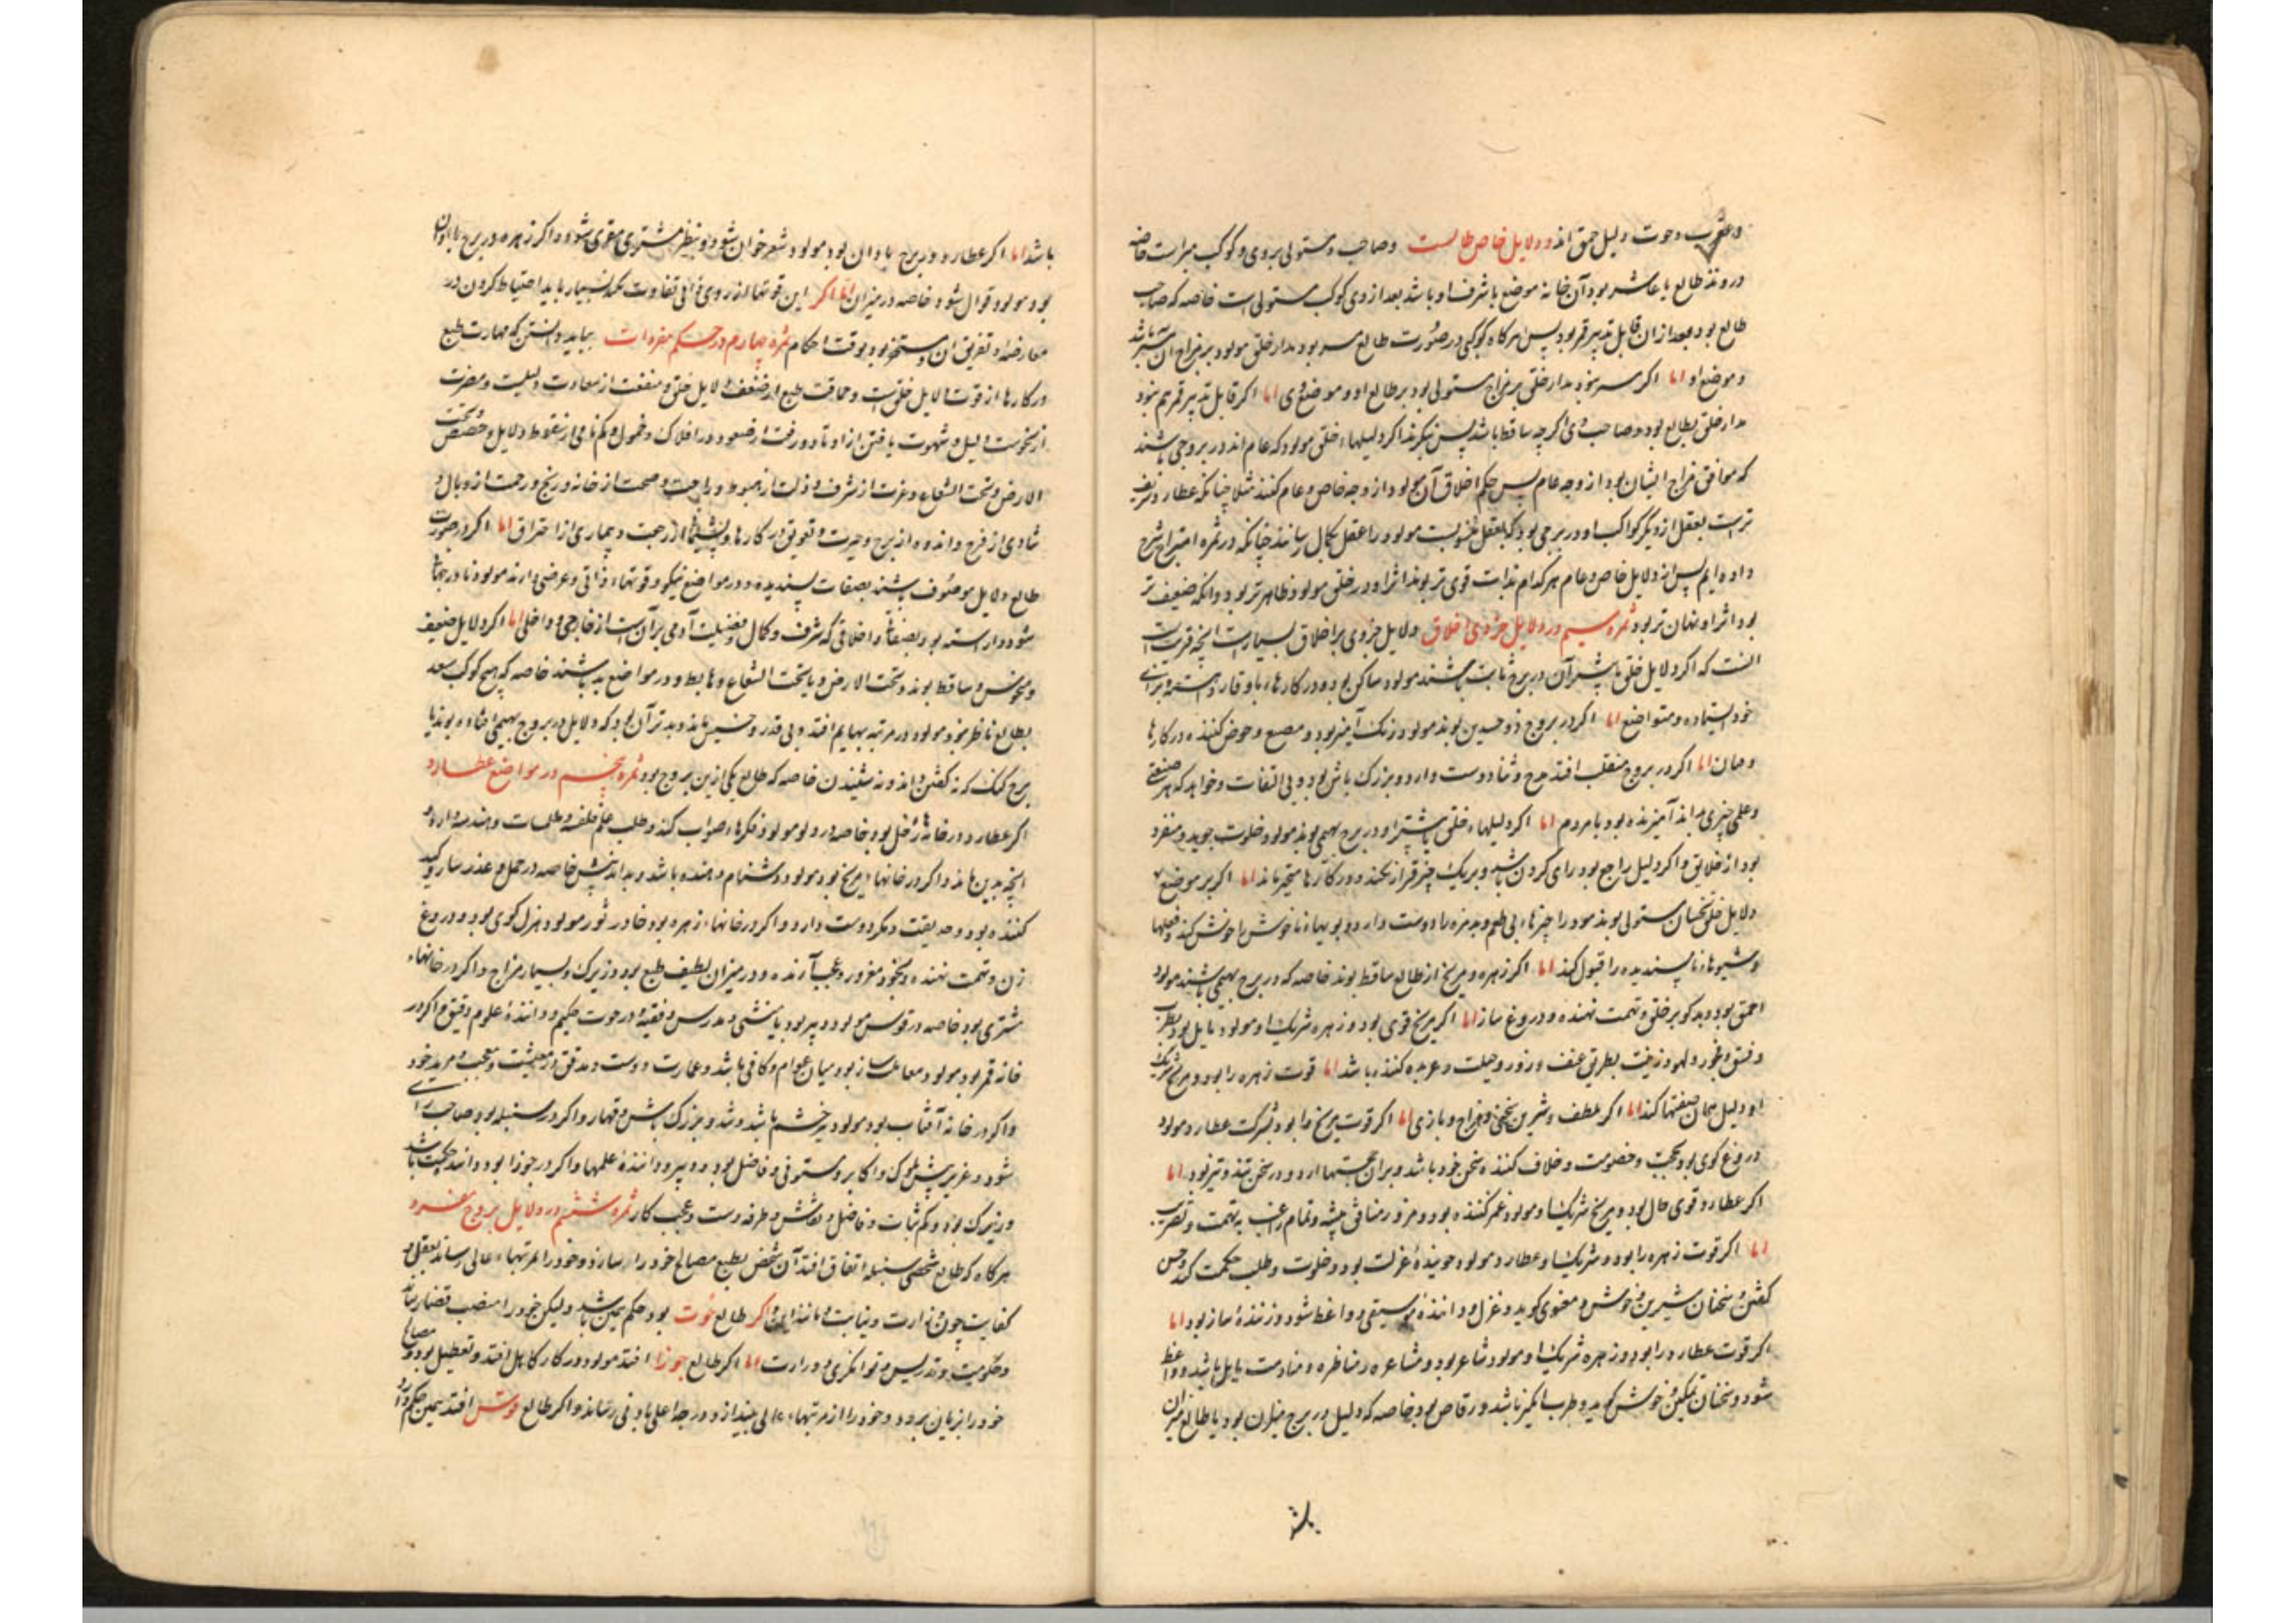 وعقرب وحوت دلیل حمق اند ودلایل خاص طالعست وصاحب ومستولی بروی وکوکب مبراست خاصه
در وتد طالع یا عاشر بود آن خانه موضع یا شرف او باشد بعد از وی کوکب مستولی است خاصه که صاحب
طالع بود وبعد از ان قابل تدبیر قمر بود پس هرکاه کوکبی در صورت طالع مسر بود مدار خلق مولود بر مزاج ان
وموضع او اما اکر مسر نبود مدار خلق بر مزاج مستولی بود بر طالع او وموضع وی اما اکر قابل تدبیر قمر هم نبود
مدار خلق بطالع بود وصاحب وی اکرچه ساقط باشد پس بنکرند اکر دلیلهاء خلق مولود که عام اند در بروجی باشند
که موافق مزاج ایشان بود از وجه عام پس حکم اخلاق آن مولود از وجه خاص وعام کنند مثلا چنانکه عطارد
تر است بعقل از دیکر کواکب او در برجی بود که بعقل منسوبست مولود را عقل بکمال رسانند چنانکه در ثمره امتزاج شرح
داده ایم پس از دلایل خاص وعام هر کدام بذات قوی تر بوند اثر او در خلق مولود ظاهر تر بود وانکه ضعیف تر
بود اثر او نهان تر بود ثمره سیم در دلایل جزوی اخلاق دلایل جزوی بر اخلاق بسیار است انچه قریب است
انست که اکر دلایل خلق بیشتر آن در برج ثابت باشند مولود ساکن بود ودر کارهاء باوقار
خود ایستاده ومتواضع اما اکر در بروج ذوجسدین بوند مولود رنک آمیز بود وخوض کننده در کارها
وجان اما اکر در بروج منقلب افتد مدح وثنا دوست دارد وبزرک باش بود وبی التفات وخواهد که هر صنعتی
وعلمی چیزی بداند آمیزنده بود با مردم اما اکر دلیلهاء خلق بیشتر او در برج بهیمی بوند مولود خلوت جوید ومنفرد
بود از خلایق واکر دلیل راجع بود رای کردن باشد وبر یک چیز قرار نکند ودر کارها متحیر ماند اما اکر بر موضع
دلایل خلق نحسان مستولی بوند مولود را چیزهاء بی طعم وبدمزه را دوست دارد وبویهاء ناخوش را خوش کند وفعلها
وشیوهاء ناپسندیده را قبول کند اما اکر زهره ومریخ از طالع ساقط بوند خاصه که در برج بهیمی باشند مولود
احمق بود وبدکو بر خلق وتهمت نهنده ودروغ ساز اما اکر مریخ قوی بود وزهره شریک او مولود مایل بود بطرب
وفسق وفجور ولهو وزینت بطریق عنف وزور وحیلت وعربده کننده باشد اما قوت زهره را بود ومریخ شریک
او دلیل همان صفتها کند اما اکر لطف وشیرین سخنی ومزاح وبازی اما اکر قوت مریخ را بود بشرکت عطارد مولود
دروغ کوی بود بحجت وخصومت وخلاف کننده سخن خود باشد وبر ان حجتها ارد ودر سخن تند وتیز بود اما
اکر عطارد قوی حال بود ومریخ شریک او مولود غمز کننده بود ومزور منافق پیشه وتمام راغب به تهمت وتضریب
اما اکر قوت زهره را بود وشریک او عطارد مولود جوینده عزلت بود وخلوت وطلب حکمت کند وحسن
کفتن وسخنان شیرین وخوش ومعنوی کوید وغزل وداننده موسیقی وواعظ شود وزننده ساز بود اما
اکر قوت عطارد را بود وزهره شریک او مولود شاعر بود ومشاعره ومناظره ومنادمت مایل باشد وواعظ
شود وسخنان نمکین وخوش کوید وطرب انکیز باشد ورقاص بود خاصه که دلیل در برج میزان بود یا طالع میزان
باشد
باشد اما اکر عطارد در برج باوان بود مولود شعرخوان شود وبنظر مشتری مقری شود واکر زهره در برج باوان
بود مولود قوال شود خاصه در میزان اما اکر این قوتها از روی ذاتی تفاوت کند بسیار باید احتیاط کردن در
معارضه وتفریق ان ومستحضر بود بوقت احکام ثمره چهارم در حکم مفردات بباید دانستن که مهارت طبع
در کارها از قوت دلایل خلق است وحماقت طبع از ضعف دلایل خلق ومنفعت از سعادت دلیلست ومضرت
از نحوست دلیل وشهوت یافتن از اوتاد ورفعت از صعود در افلاک وخمول وکم نامی از سقوط دلایل وتحت
الارض وتحت الشعاع وعزت از شرف وذلت از هبوط وراحت وصحت از خانه ورنج وزحمت از وبال و
شادی از فرح واندوه از برج وحیرت وتعویق در کارها وپشیمانی از رجعت وبیماری از احتراق اما اکر در صورت
طالع دلایل موصوف باشند بصفات پسندیده ودر مواضع نیکو وقوتهاء ذاتی وعرضی دارند مولود نادر جهان
شود واراسته بود بصفات واخلاقی که شرف وکمال وفضیلت آدمی بر آن است از خارجی وداخلی اما اکر دلایل ضعیف
ومنحوس وساقط بوند وتحت الارض ویا تحت الشعاع وهابط ودر مواضع بد باشند خاصه که هیچ کوکب سعد
بطالع ناظر نبود مولود در مرتبه بهایم افتد وبی قدر وخسیس ماند وبدتر آن بود که دلایل در بروج بهیمی افتاده بوند یا
برج کنک که نه کفتن داند ونه شنیدن خاصه که طالع یکی از ین بروج بود ثمره پنجم در مواضع عطارد
اکر عطارد در خانهاء زحل بود خاصه در دلو مولود فکرهاء صواب کند وطلب علم فلسفه وطلسمات وهندسه دارد و
انچه بدین ماند واکر در خانهاء مریخ بود مولود دشنام دهنده باشد وبد اندیش خاصه در حمل وغدر ساز وکید
کننده بود وصدیقت ومکر دوست دارد واکر در خانهاء زهره بود خاصه در ثور مولود هزل کوی بود ودروغ
زن وتهمت نهنده وبخود مغرور وعجب آرنده ودر میزان لطیف طبع بود وزیرک وبسیار مزاح واکر در خانهاء
مشتری بود خاصه در قوس مولود دبیر بود یا منشی ومدرس وفقیه ودر حوت حکیم وداننده علوم دقیق واکر در
خانه قمر بود مولود معامله ساز بود میان عوام وکافی باشد وعمارت دوست ومدقق در معیشت ومعجب ومرید خود
واکر در خانه آفتاب بود مولود تیز خشم باشد وتند وبزرک باش وقهار واکر در سنبله بود صاحب رای
شود وعزیز پیش ملوک واکابر ومستوفی وفاضل بود ودبیر وداننده علمها واکر در جوزا بود داننده حکمت باشد
وزیرک بود وکم ثبات وفاضل ونقاش وطرفه دست وعجب کار ثمره ششم در دلایل بروج مفرد
هرکاه که طالع شخصی سنبله اتفاق افتد آن شخص بطبع مصالح خود را سازد وخود را بمرتبهاء عالی رساند بعقل و
کفایت چون وزارت ونیابت ومانند این واکر طالع حوت بود حکم همین باشد ولیکن خود را بمنصب قضا رساند
وحکومت وتدریس وتوانکری ووزارت اما اکر طالع جوزا افتد مولود در کار کاهل افتد وتعطیل بود ومصالح
خود را زیان برد وخود را از مرتبهاء عالی بیندازد ودرجه اعلی بادنی رساند واکر طالع قوس افتد همین حکم دارد